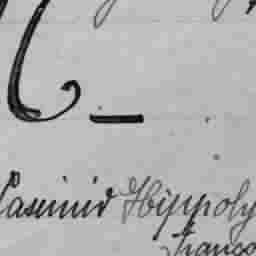 Casimir Hippoly
Franço